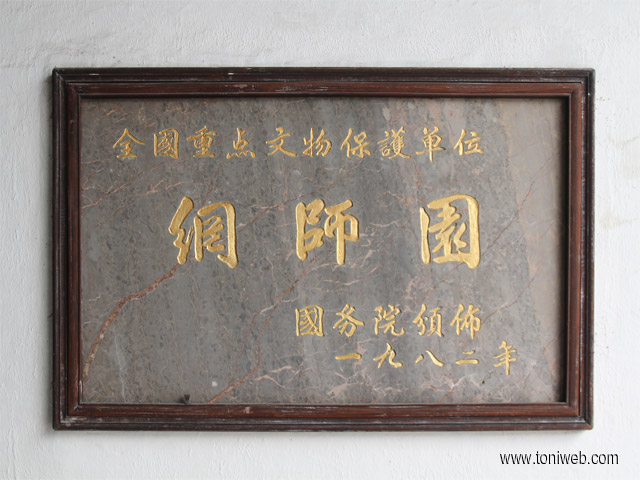 全國重点文物保護单位
網師園
國务院頒佈
一九八二年
www.toniweb.com